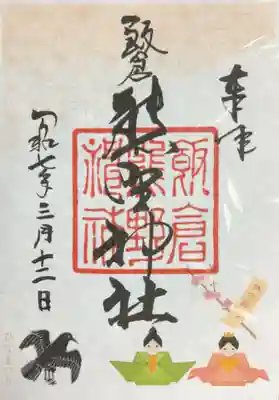 奉拝
飯倉
熊野神社
飯倉
熊野
神社
令和七年三月十二日